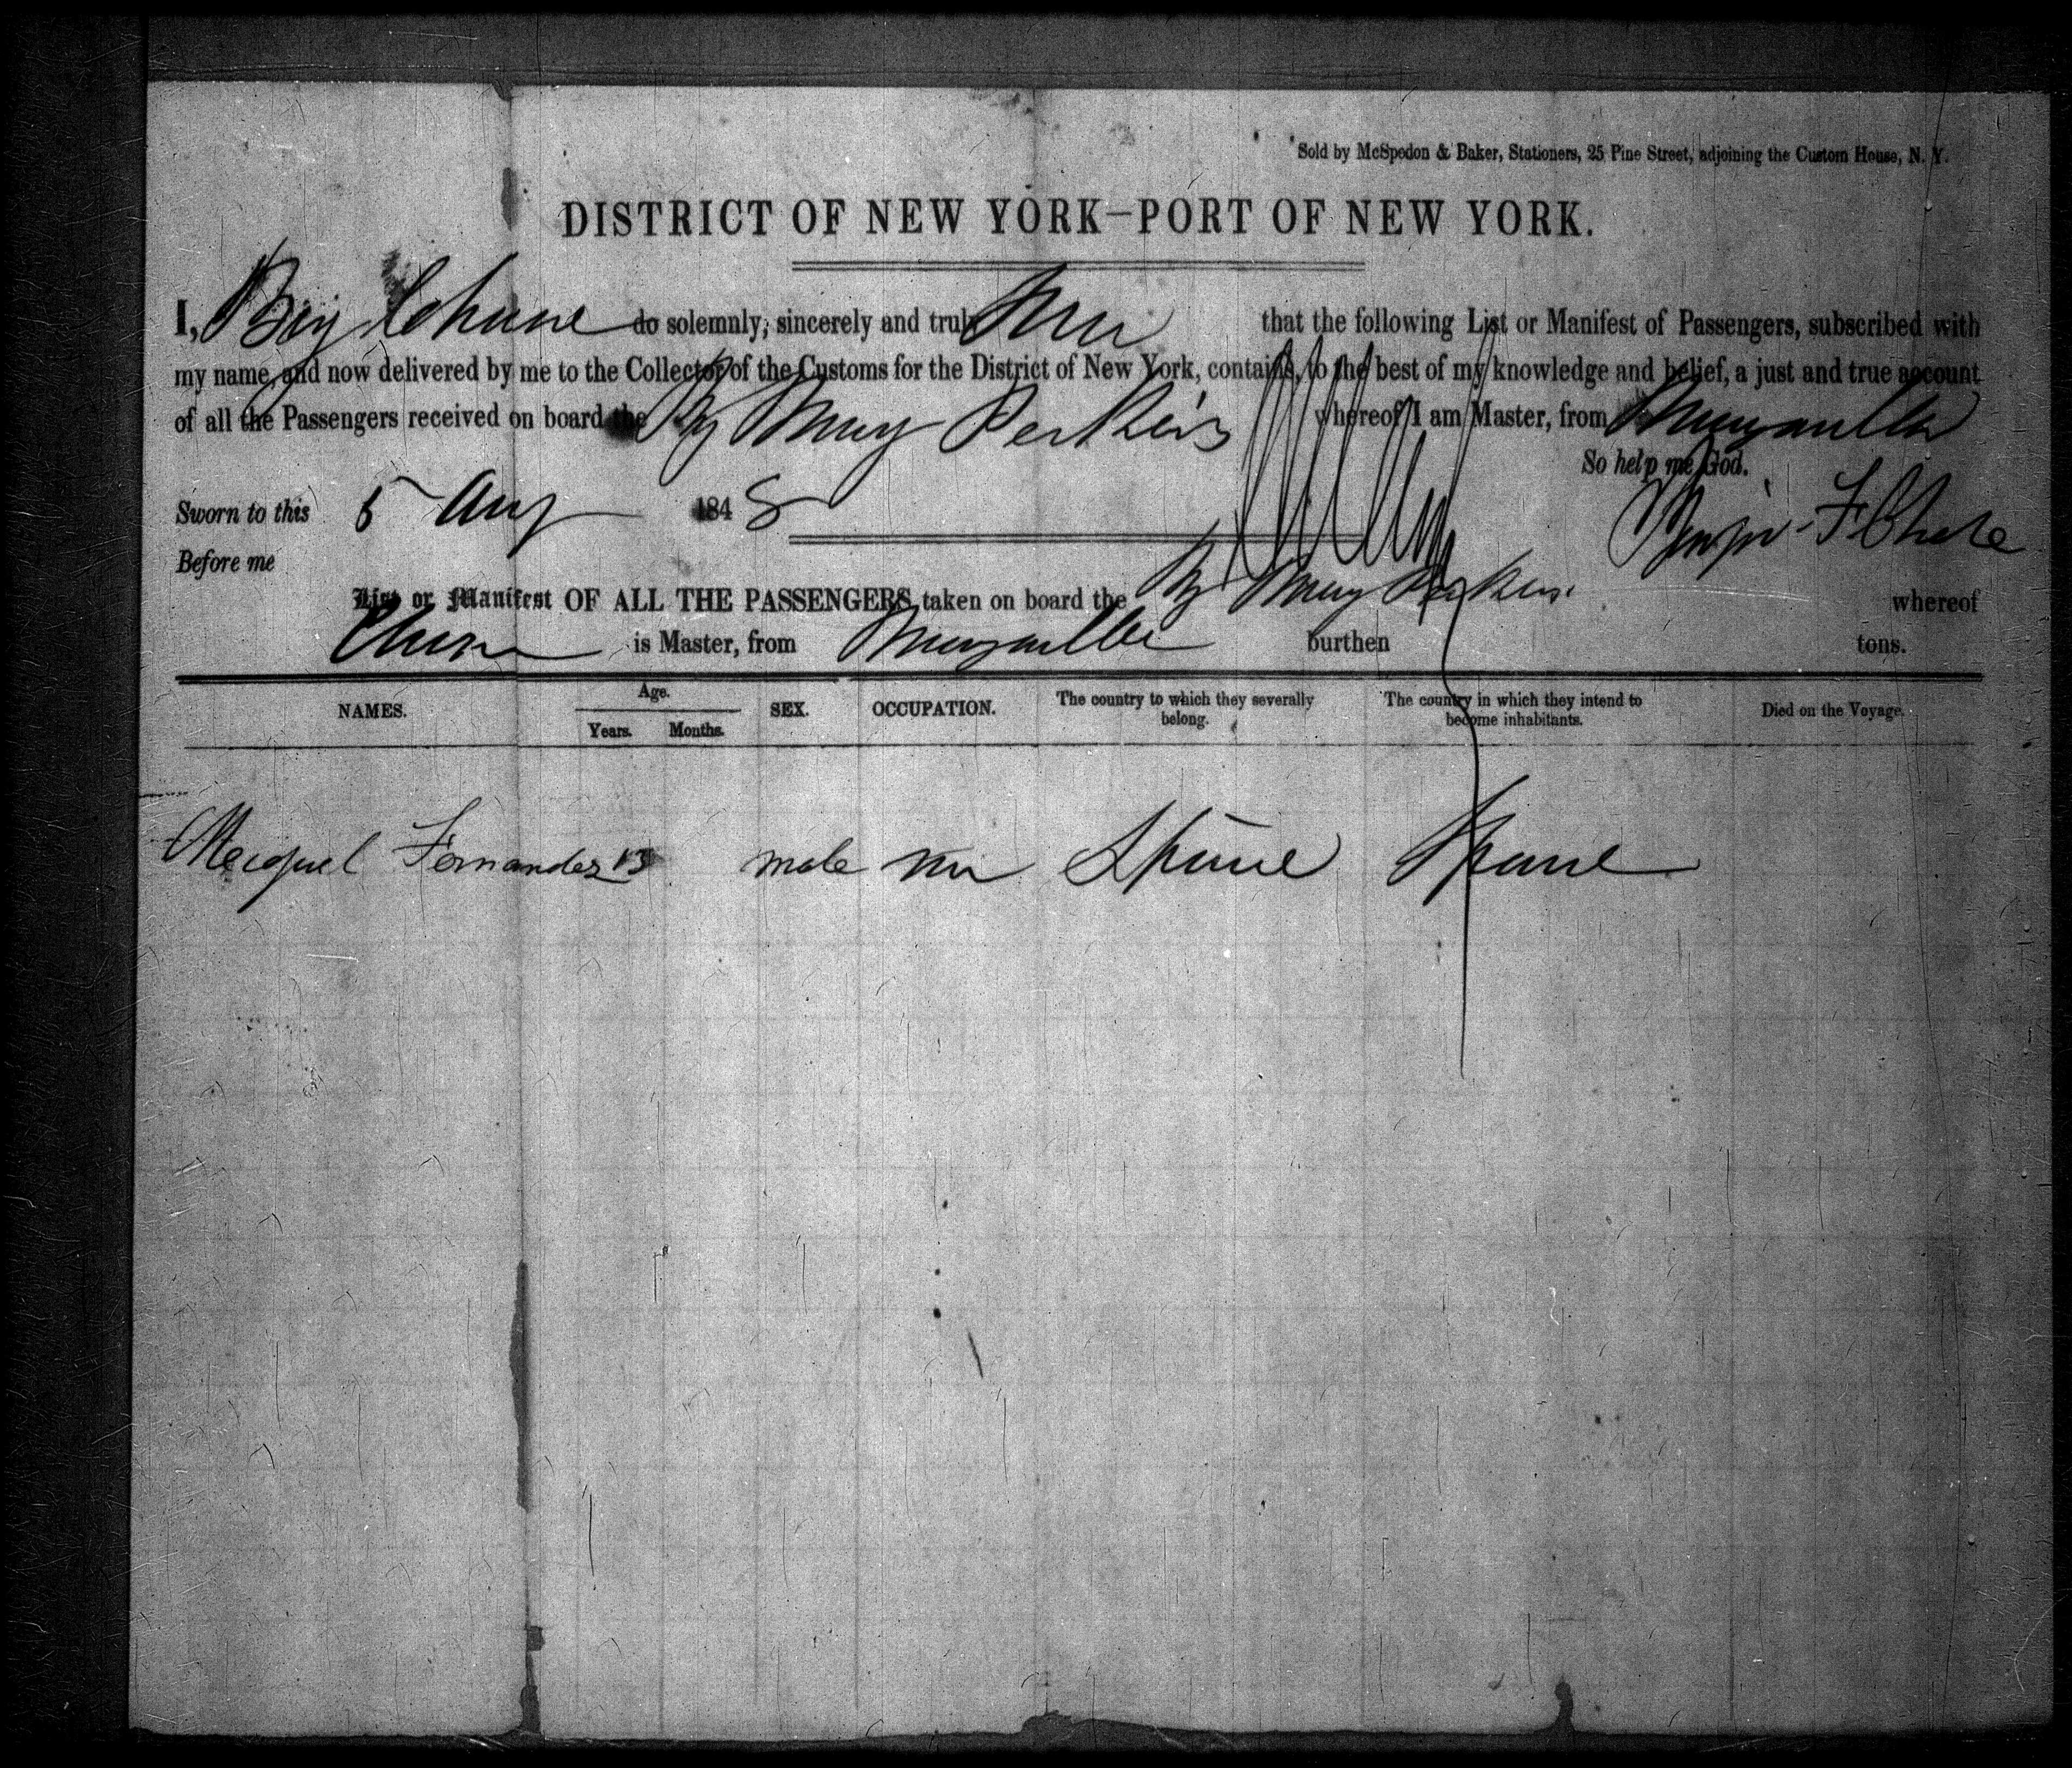 Sold by McSpedon & Baker, Stationers, 25 Pine Street, adjoining the Custom House, N. Y.
DISTRICT OF NEW YORK—PORT OF NEW YORK.
I, Benj do solemnly, sincerely and truly that the following List or Manifest of Passengers, subscribed with
my name, and now delivered by me to the Collector of the Customs for the District of New York, contains, to the best of my knowledge and belief, a just and true account
of all the Passengers received on board the Mary Perkins whereof I am Master, from
So help me God.
Sworn to this 5 Aug 1848
Before me
List or Manifest OF ALL THE PASSENGERS taken on board the Mary Perkins whereof
is Master, from burthen tons.
NAMES. Age. Years. Months. SEX. OCCUPATION. The country to which they severally belong. The country in which they intend to become inhabitants. Died on the Voyage.
Fernandez 13 male Spane Spane